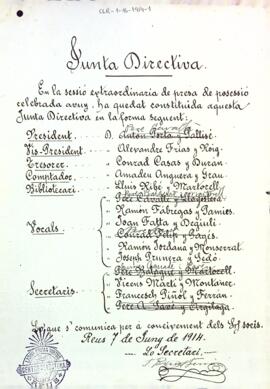 CLR-1-16-1914-1
Junta Directiva.
En la sessió extraordinaria de presa de possesió
celebrada avuy, ha quedat constituida aquesta
Junta Directiva en la forma seguent:
President D. Anton Porta y Pallisé
Vis-President " Alexandre Frías y Roig
Tresorer " Conrad Casas y Durán
Comptador " Amadeu Anguera y Grau
Bibliotecari " Lluis Ribé y Martorell
" Pere Cavallé y Llagostera
" Ramón Fábregas y Pamies
Vocals " Joan Fatta y Degiuli
" Ramón Jordana y Monserrat
" Joseph Prunera y Sedó
" Pere Balagué y Martorell
Secretaris " Vicens Martí y Montaner
" Francesch Piñol y Ferrán
Lo que s'comunica per a coneixement dels Srs. socis.
Reus 7 de Juny de 1914.
Lo Secretari.